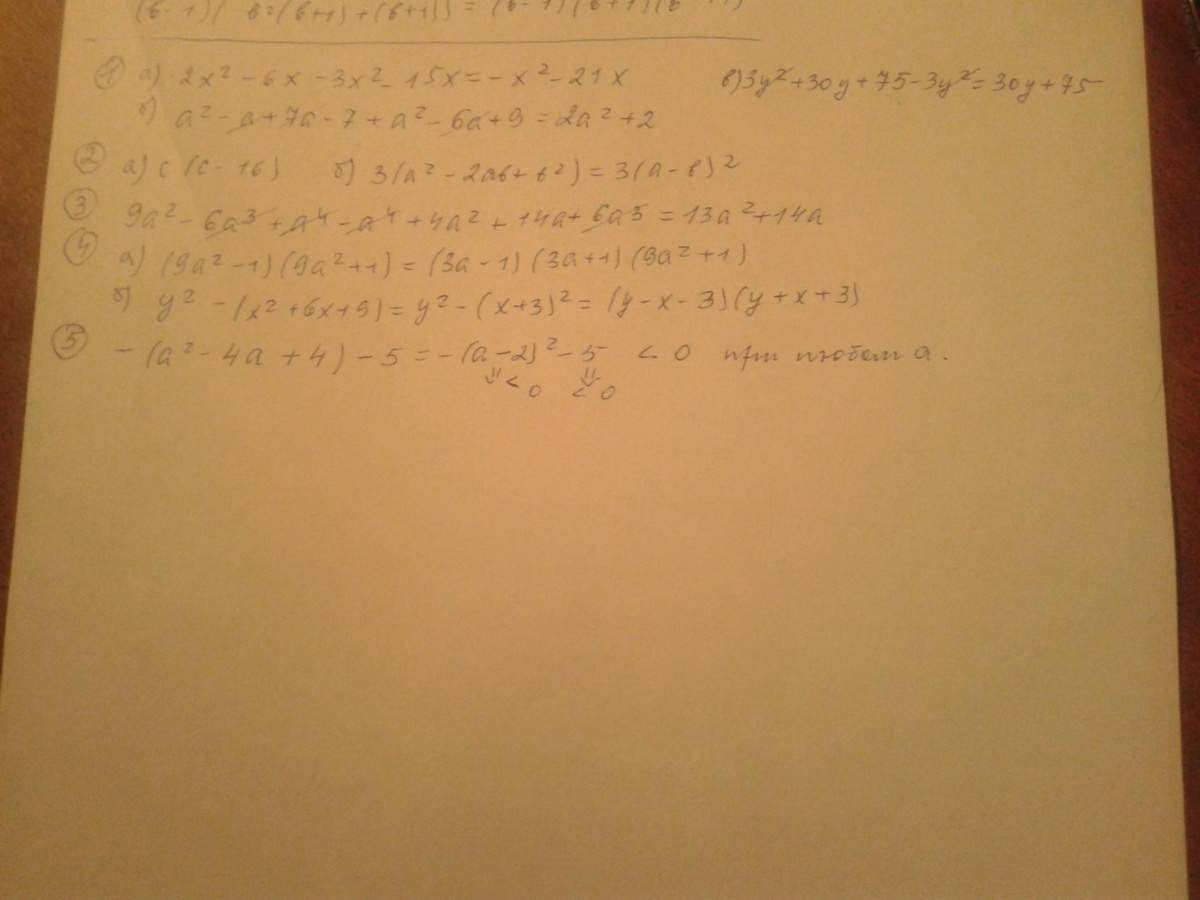 (в-1)( в²(в+1)+(в+1)) = (в-1)(в+1)(в
① а) 2x² - 6x - 3x² - 15x = - x² - 21x в) 3y² + 30y + 75 - 3y² = 30y + 75
б) a² - a + 7a - 7 + a² - 6a + 9 = 2a² + 2
② а) c (c - 16) б) 3(a² - 2ab + b²) = 3(a - b)²
③ 9a² - 6a³ + a⁴ - a⁴ + 4a² + 14a + 6a³ = 13a² + 14a
④ а) (9a² - 1)(9a² + 1) = (3a - 1)(3a + 1)(9a² + 1)
б) y² - (x² + 6x + 9) = y² - (x + 3)² = (y - x - 3)(y + x + 3)
⑤ - (a² - 4a + 4) - 5 = - (a - 2)² - 5 < 0 при любом a.
⇓ < 0 ⇓ < 0